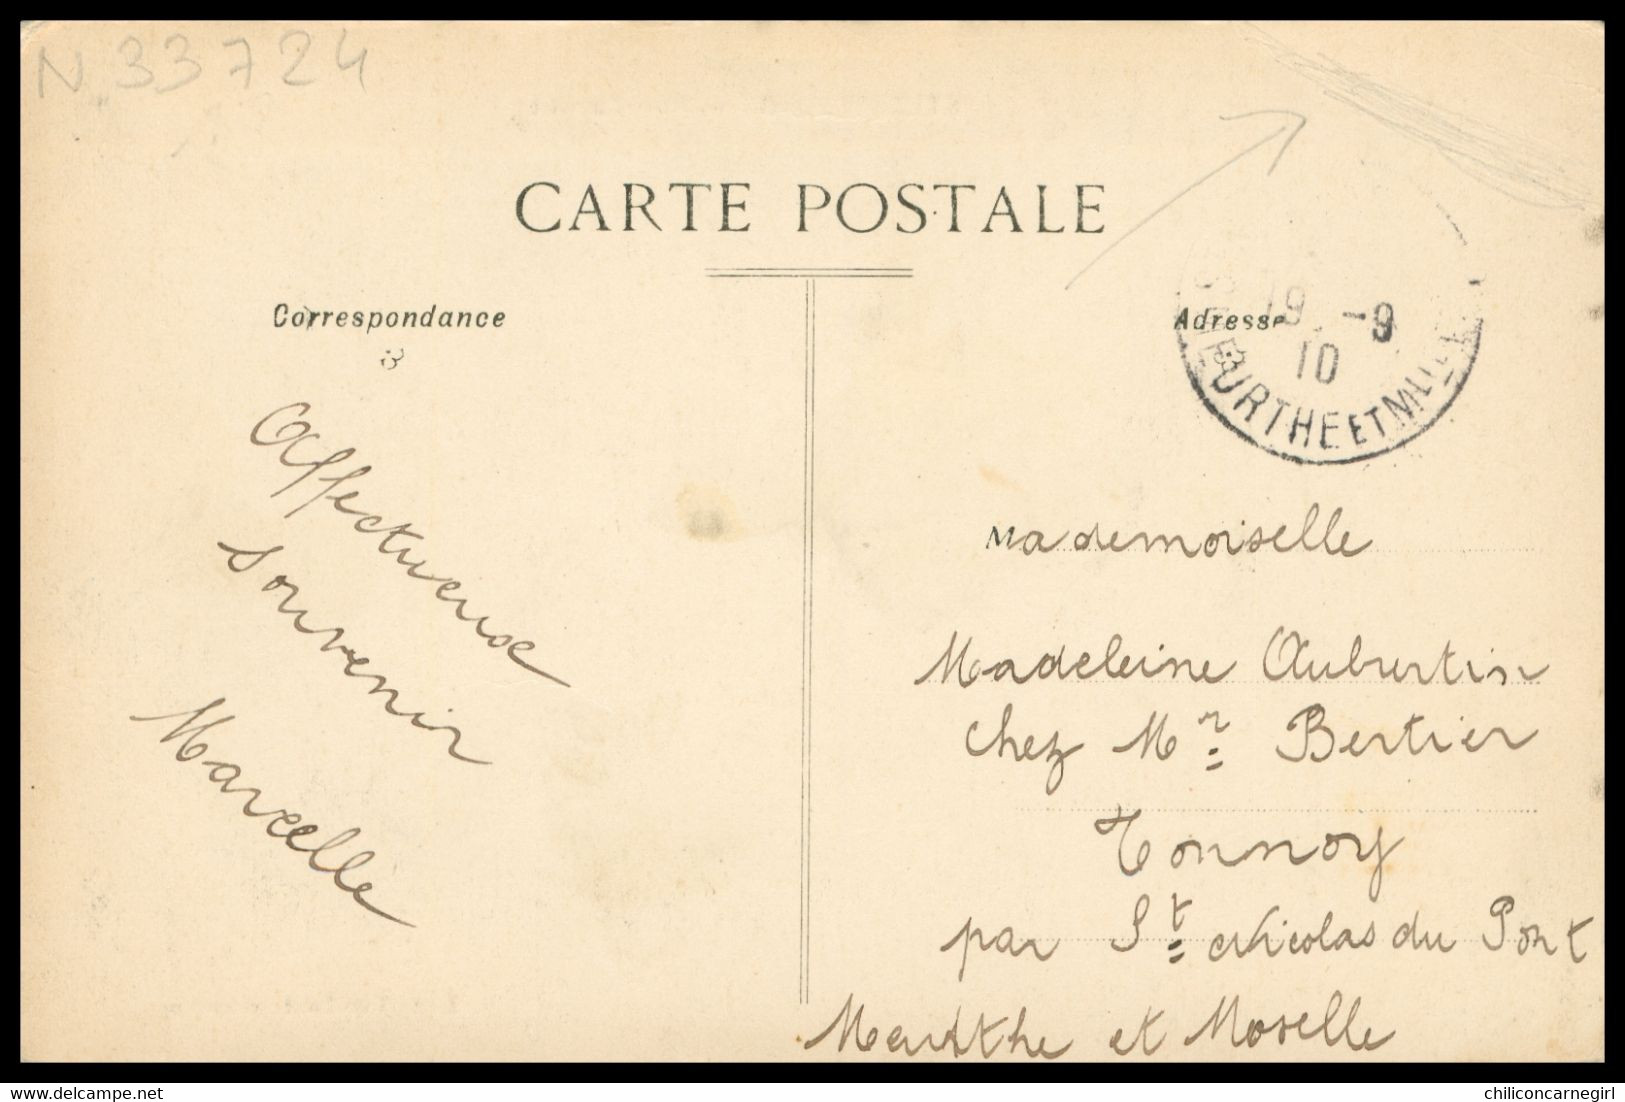 N 33724
CARTE POSTALE
Correspondance
Adresse
19 -9
10
MEURTHE ET M
Affectueux
souvenir
Marcelle
Mademoiselle
Madeleine Aubertin
chez Mr Bertier
Tonnoy
par St Nicolas du Pont
Meurthe et Moselle
delcampe.net
chiliconcarnegirl